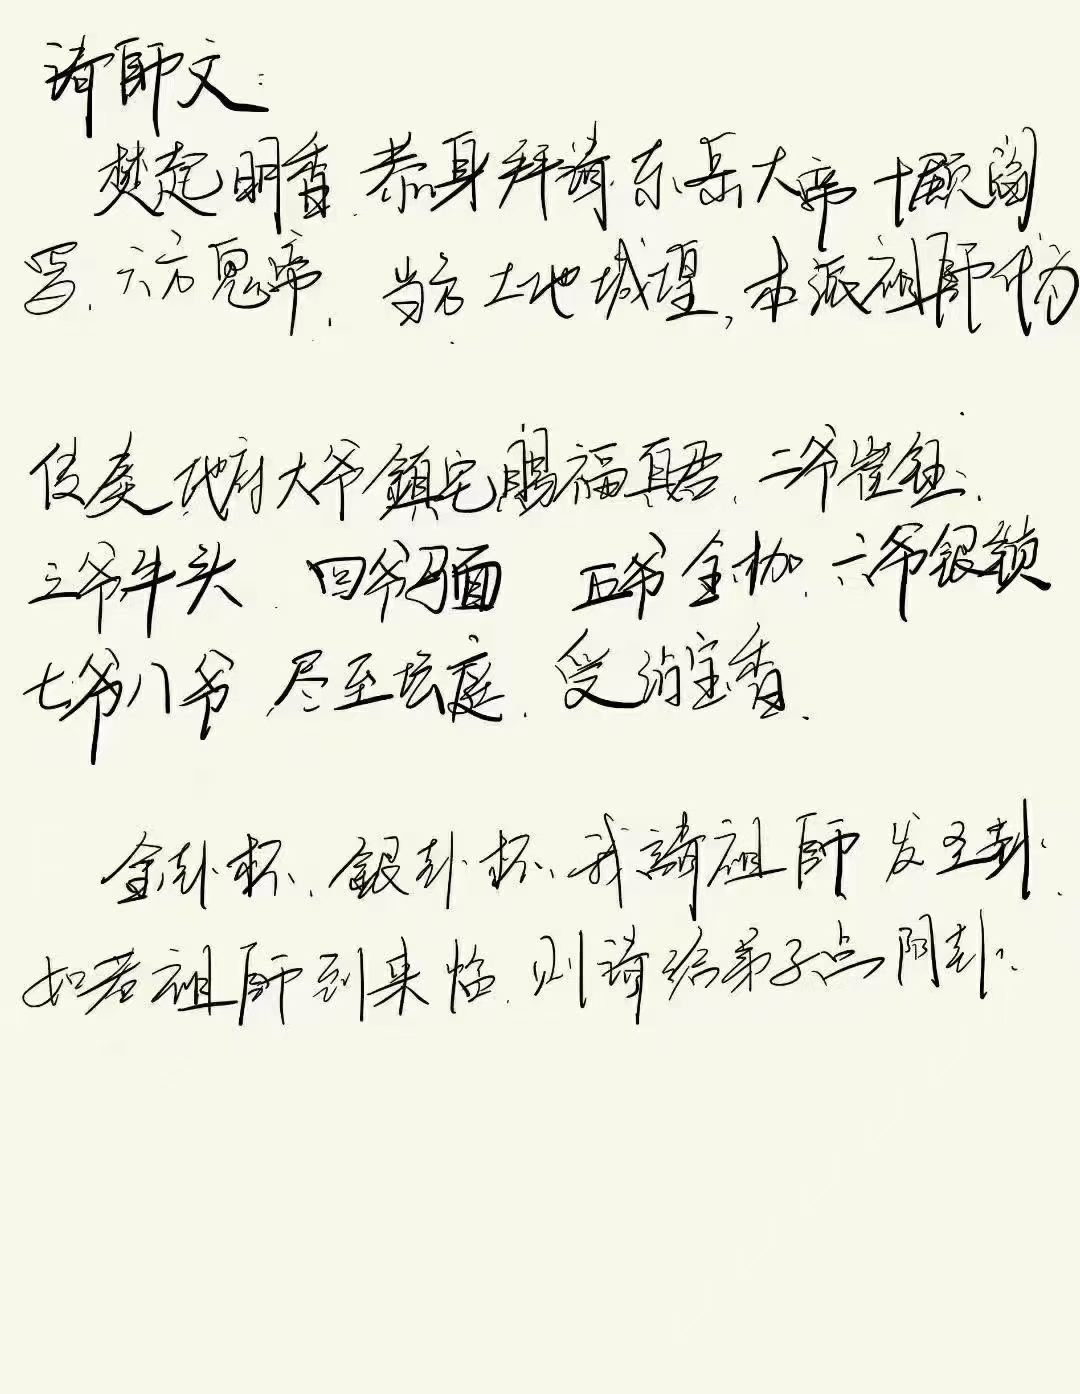 請師文:
焚起明香.恭身拜請.东岳大帝 十殿阎
罗.六方鬼帝. 当方土地城隍,本派祖師代为
传奏.地府大爷鎮宅赐福真君.二爷崔鈺.
三爷牛头. 四爷马面 五爷金枷.六爷银锁
七爷八爷.尽至坛庭.受沾宝香.
金卦杯.銀卦杯.我請祖師发圣卦.
如若祖師到来临.则請给弟子点阴卦.